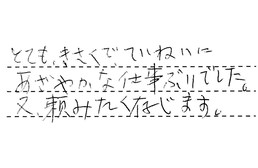 とても、きさくで、ていねいに
あざやかな仕事ぶりでした。
又、頼みたく存じます。